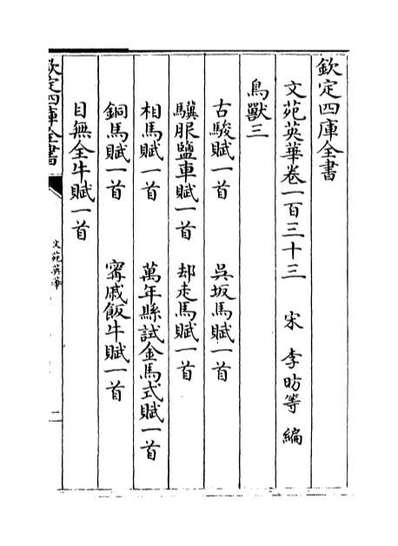 欽定四庫全書
文苑英華卷一百三十三 宋 李昉等 編
鳥獸三
古駿賦一首 吳坂馬賦一首
驥服鹽車賦一首 却走馬賦一首
相馬賦一首 萬年縣試金馬式賦一首
銅馬賦一首 甯戚飯牛賦一首
目無全牛賦一首
欽定四庫全書
文苑英華